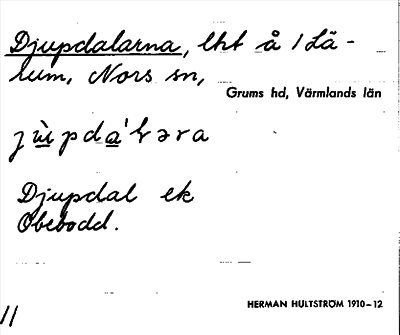 Djupdalarna, lht å /Lä-
lum, Nors sn,
Grums hd, Värmlands län
Djupdal ek
Obebodd.
HERMAN HULTSTRÖM 1910–12